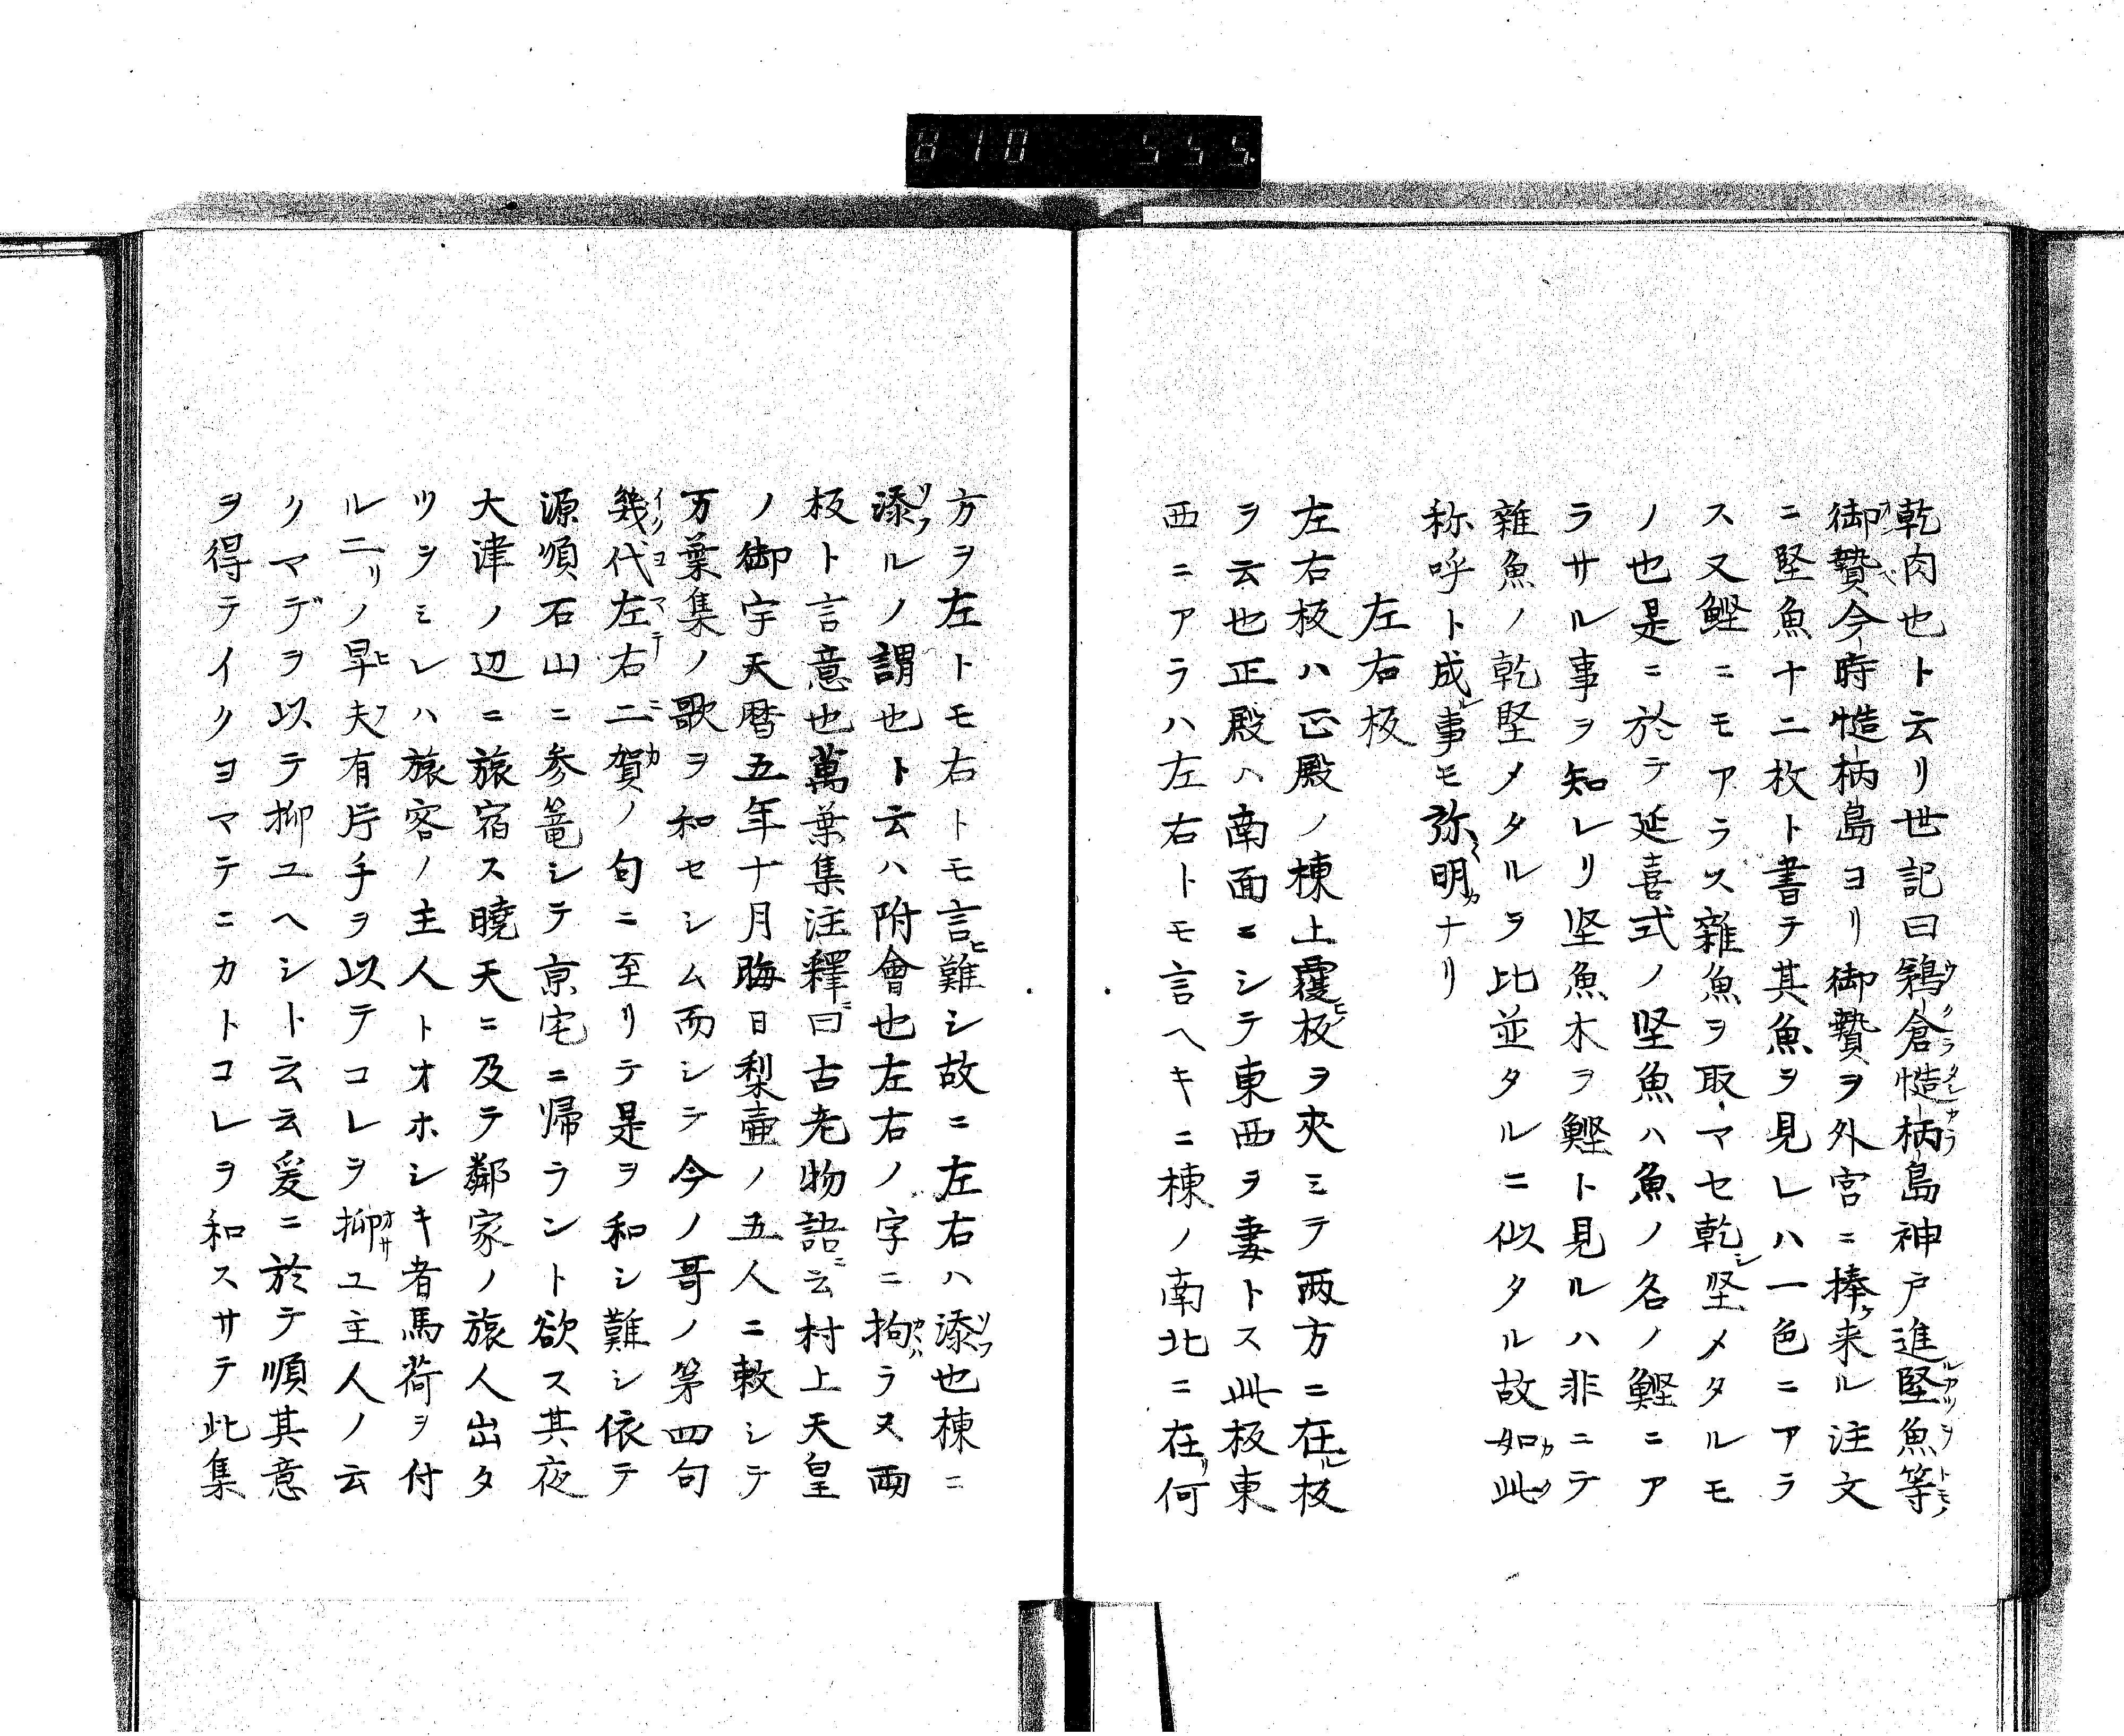 810 555
乾肉也ト云リ世記曰鵜倉慥柄島神戸進堅魚等
御贄今時慥柄島ヨリ御贄ヲ外宮ニ捧来ル注文
ニ堅魚十二枚ト書テ其魚ヲ見レハ一色ニアラ
ス又鰹ニモアラス雑魚ヲ取マセ乾堅メタルモ
ノ也是ニ於テ延喜式ノ堅魚ハ魚ノ名ノ鰹ニア
ラサル事ヲ知レリ坚魚木ヲ鰹ト見ルハ非ニテ
雜魚ノ乾坚メタルヲ比並タルニ似タル故如此
称呼ト成事モ弥明ナリ
左右板
左右板ハ正殿ノ棟上覆板ヲ夾ミテ两方ニ在板
ヲ云也正殿ハ南面ニシテ東西ヲ妻トス此板東
西ニアラハ左右トモ言ヘキニ棟ノ南北ニ在何
方ヲ左トモ右トモ言難シ故ニ左右ハ添也棟ニ
添ルノ謂也ト云ハ附會也左右ノ字ニ拘ラス両
板ト言意也萬葉集注釋曰古老物語云村上天皇
ノ御宇天暦五年十月晦日梨壷ノ五人ニ敕シテ
万葉集ノ歌ヲ和セシム而シテ今ノ哥ノ第四句
幾代左右二賀ノ句ニ至リテ是ヲ和シ難シ依テ
源順石山ニ参篭シテ京宅ニ帰ラント欲ス其夜
大津ノ辺ニ旅宿ス曉天ニ及テ鄰家ノ旅人出タ
ツヲミレハ旅客ノ主人トオホシキ者馬荷ヲ付
ルニリノ早夫有片手ヲ以テコレヲ抑ユ主人ノ云
ノマデヲ以テ抑ユヘシト云云爰ニ於テ順其意
ヲ得テイクヨマテニカトコレヲ和スサテ此集